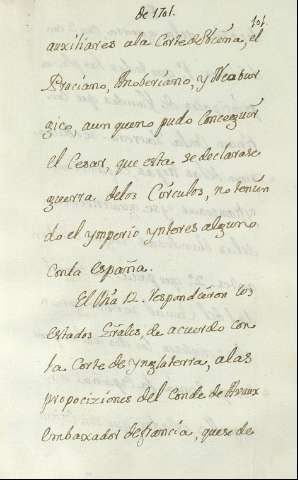 de 1701.
101.
auxiliares ala Corte de Viena, el
Prusiano, Anoberiano, y
gico, aunqueno pudo Conseguir
el Cesar, que esta se declarase
guerra delos Círculos, no tenien
do el ymperio ynteres alguno
conla españa.
El Dia 12. respondieron los
estados Grãles, de acuerdo con
la Corte de ynglaterra, alas
proposiziones del Conde de Avaux
embaxador defrancia, quese de